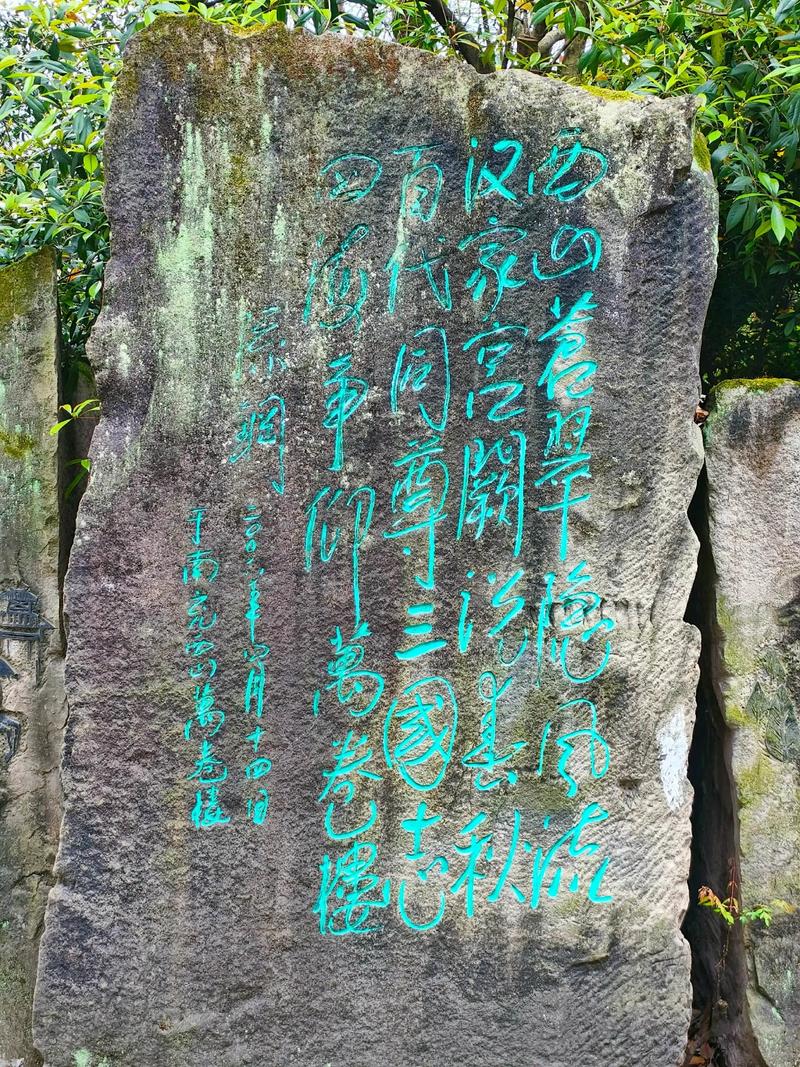 西山蒼翠隐风流
汉家宫闕说春秋
百代同尊三國志
四海争仰萬卷樓
二〇〇六年八月十四日
于南充西山萬卷樓